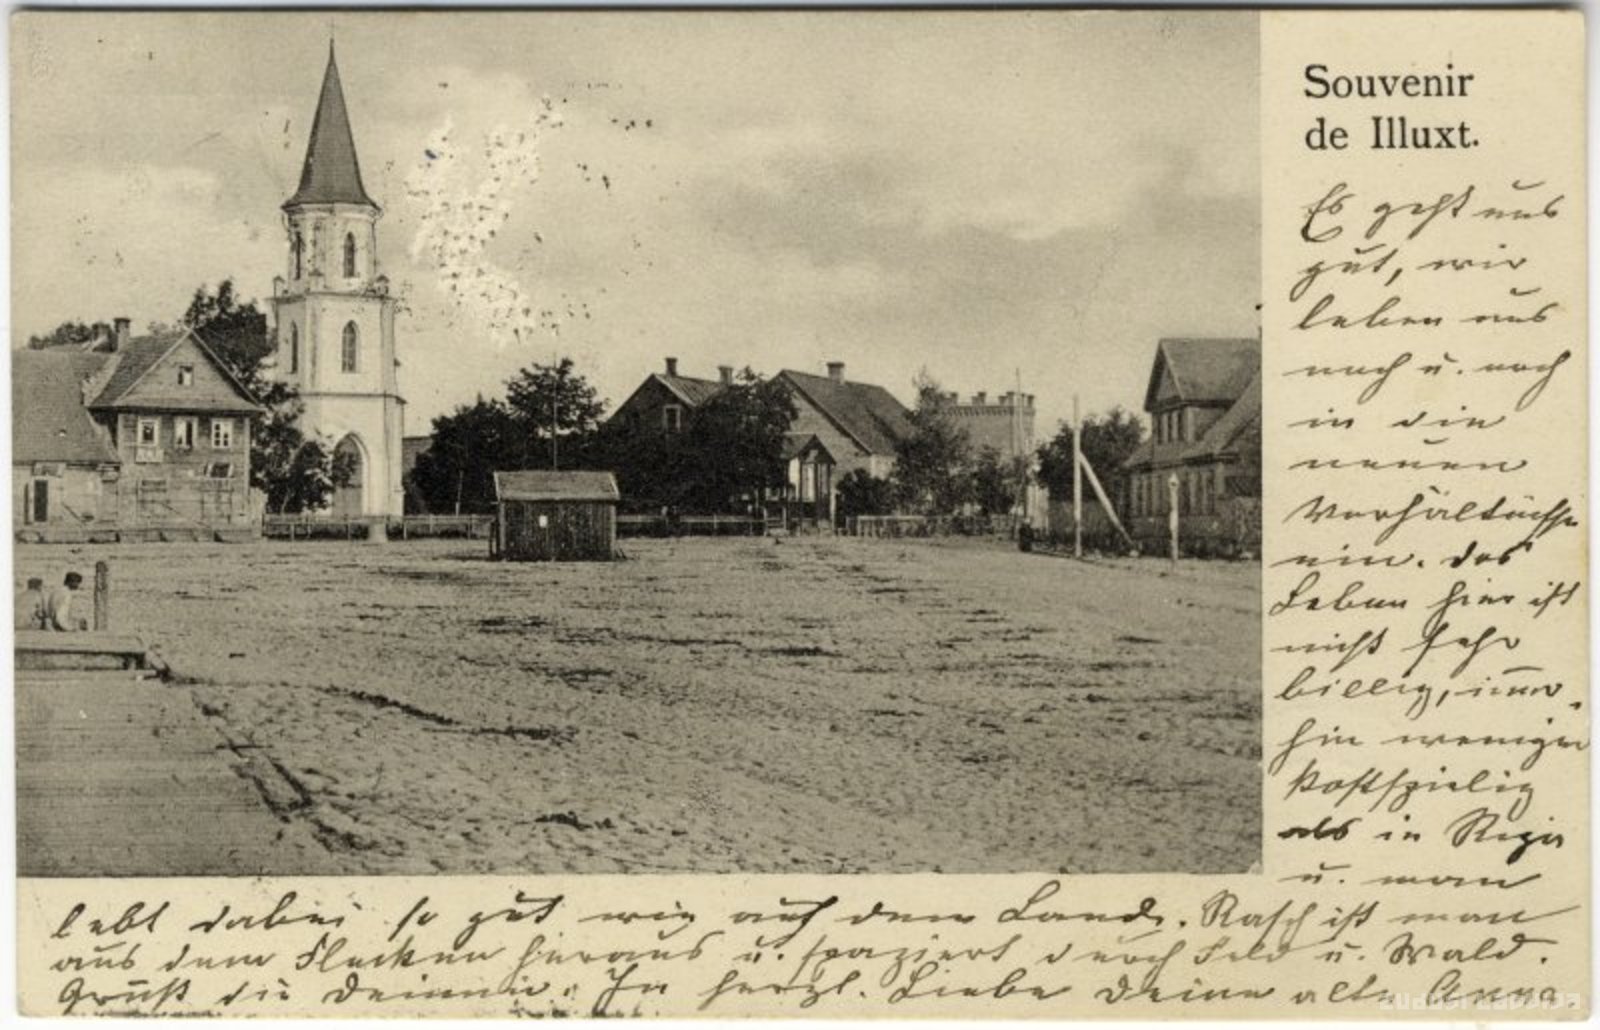 Souvenir
de Illuxt.
Es geht uns
gut, wir
leben uns
nach u. nach
in die
neuen
Verhältnisse
ein. Das
Leben hier ist
nicht sehr
billig, immer
hin weniger
kostspielig
als in Riga
u. man
lebt dabei so gut wie auf dem Lande. Rasch ist man
aus dem Flecken heraus u. spaziert durch Feld u. Wald.
Grüß die Deinen. In herzl. Liebe Deine alte Anna.